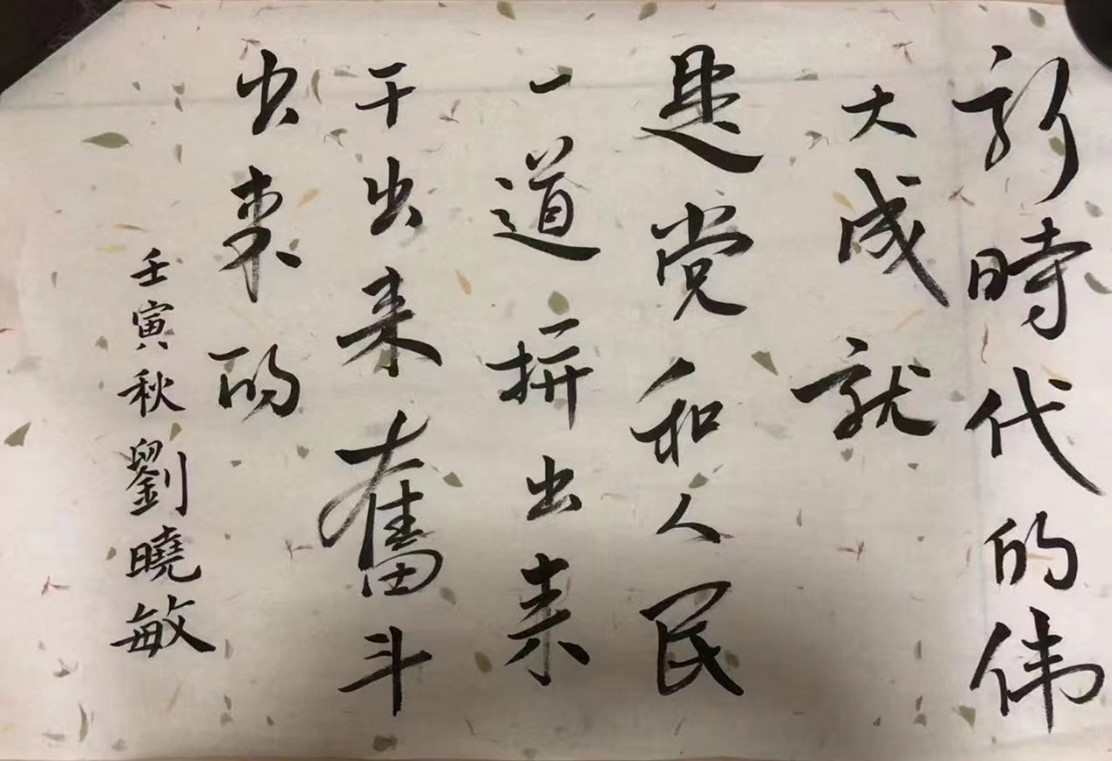 新時代的伟
大成就
是党和人民
一道拼出来
干出来奮斗
出来的
壬寅秋劉曉敏